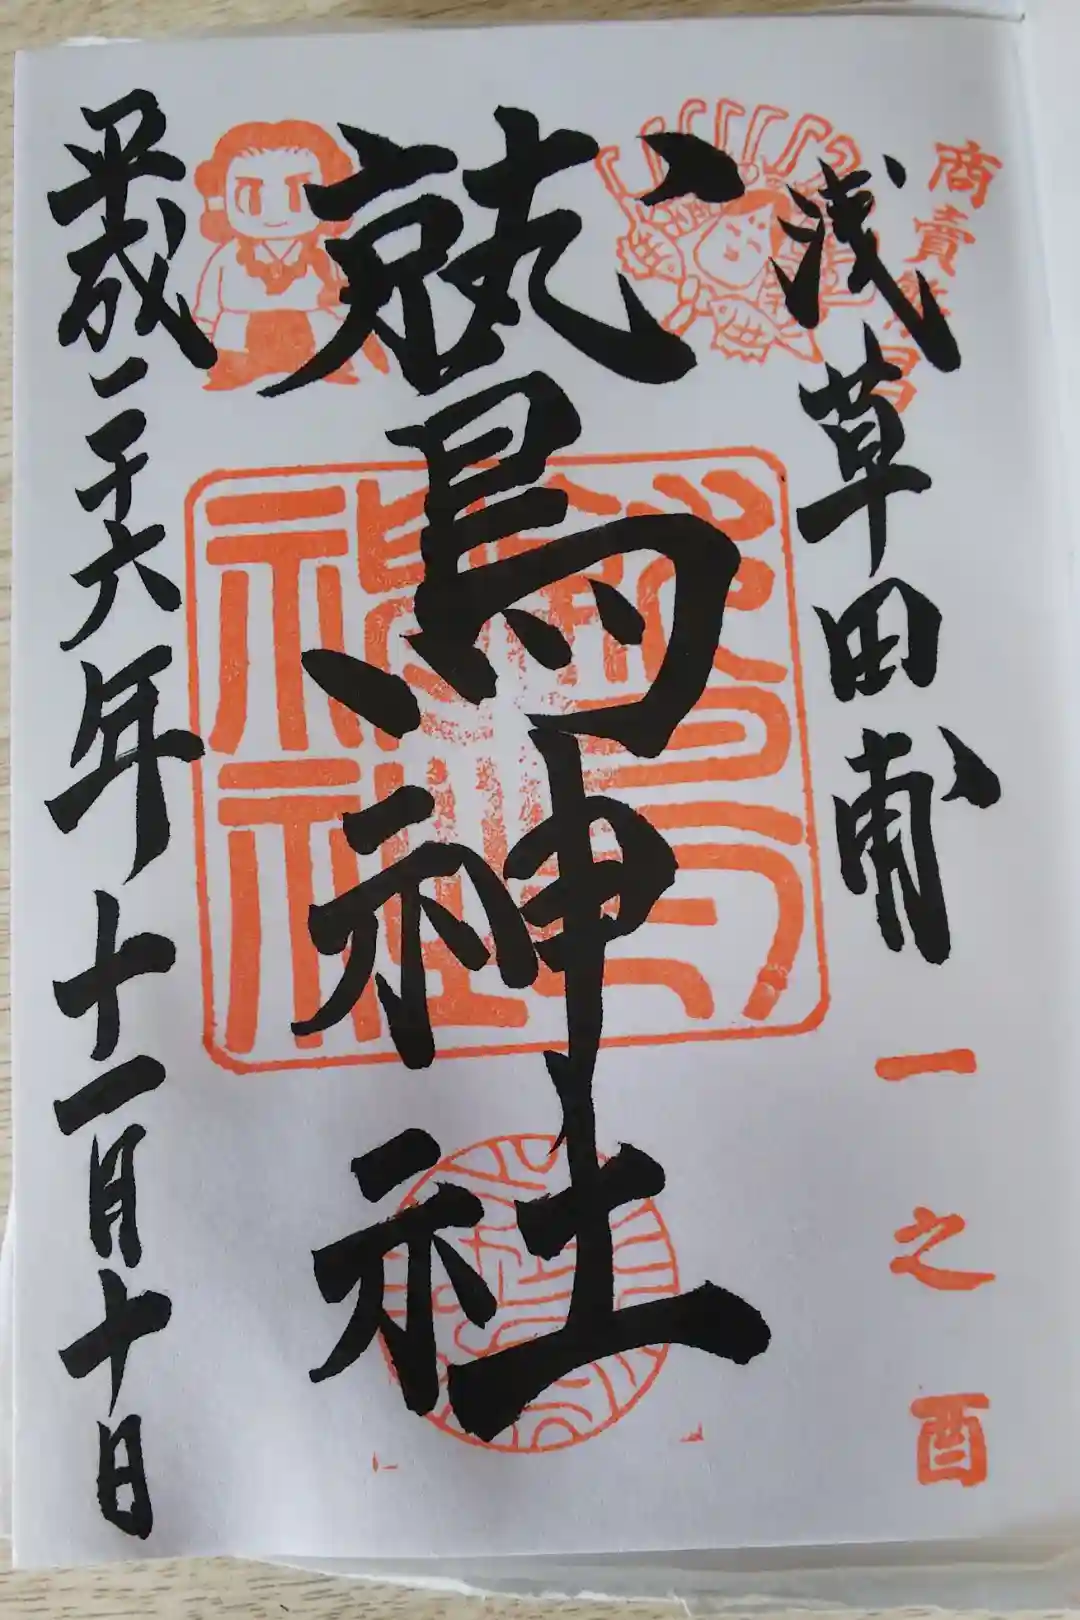 商賣繁昌
浅草田甫
一之酉
鷲神社
平成二十六年十一月十日